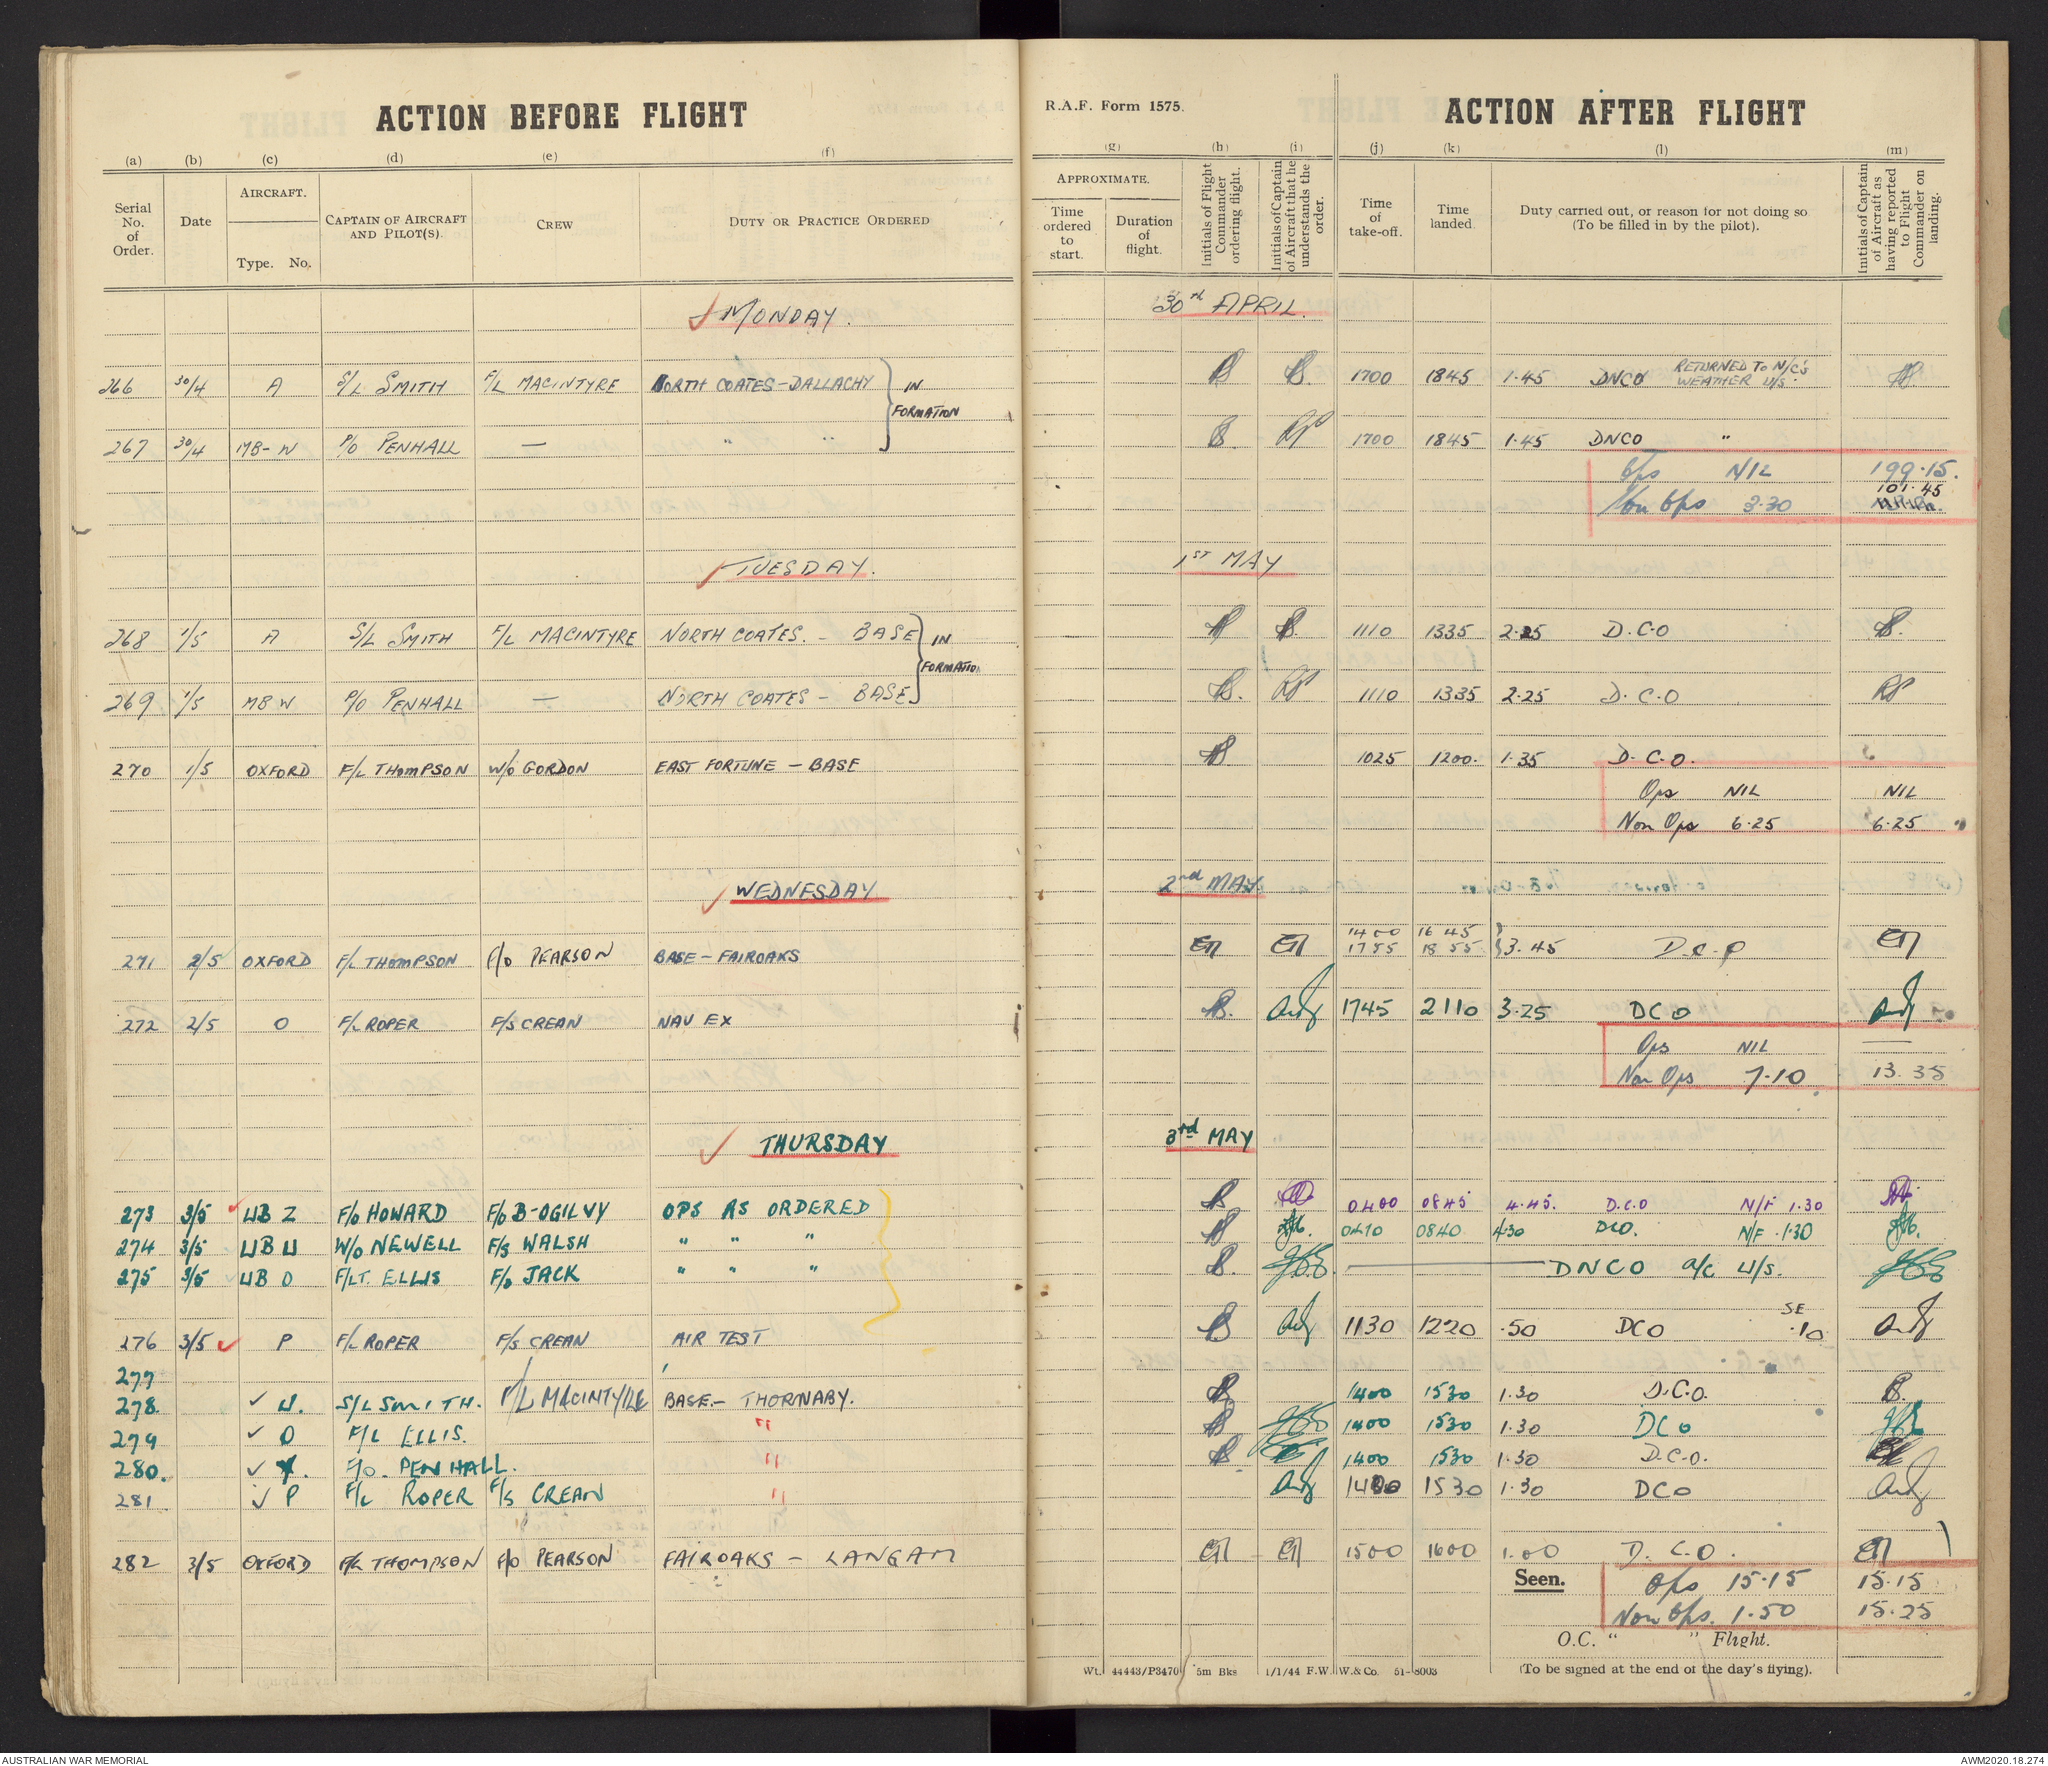 ACTION BEFORE FLIGHT
R.A.F. Form 1575.
ACTION AFTER FLIGHT
(a) (b) (c) (d) (e) (f) (g) (h) (i) (j) (k) (l) (m)
Serial No. of Order.
Date
AIRCRAFT.
Type. No.
CAPTAIN OF AIRCRAFT AND PILOT(S).
CREW
DUTY OR PRACTICE ORDERED
APPROXIMATE.
Time ordered to start.
Duration of flight.
Initials of Flight Commander ordering flight.
Initials of Captain of Aircraft that he understands the order.
Time of take-off.
Time landed.
Duty carried out, or reason for not doing so (To be filled in by the pilot).
Initials of Captain of Aircraft as having reported to Flight Commander on landing.
MONDAY. 30th APRIL.
266 30/4 A S/L SMITH F/L MACINTYRE NORTH COATES-DALLACHY IN FORMATION 1700 1845 1.45 DNCO RETURNED TO N/C's WEATHER U/S.
267 30/4 MB-W P/O PENHALL — " " 1700 1845 1.45 DNCO "
Ops NIL 199.15.
Non Ops 3.30 101.45
TUESDAY. 1ST MAY
268 1/5 A S/L SMITH F/L MACINTYRE NORTH COATES. - BASE IN FORMATION 1110 1335 2.25 D.C.O
269 1/5 MB W P/O PENHALL — NORTH COATES - BASE RP 1110 1335 2.25 D.C.O RP
270 1/5 OXFORD F/L THOMPSON W/O GORDON EAST FORTUNE - BASE 1025 1200. 1.35 D.C.O.
Ops NIL NIL
Non Ops 6.25 6.25
WEDNESDAY 2nd MAY.
271 2/5 OXFORD F/L THOMPSON F/O PEARSON BASE - FAIROAKS ET ET 1400 1645 1755 1855 3.45 D.C.O ET
272 2/5 O F/L ROPER F/S CREAN NAV EX 1745 2110 3.25 DCO
Ops NIL
Non Ops 7.10 13.35
THURSDAY 3rd MAY
273 3/5 UB Z F/O HOWARD F/O B-OGILVY OPS AS ORDERED 0400 0845 4.45. D.C.O N/F 1.30
274 3/5 UB U W/O NEWELL F/S WALSH " " " 0410 0840 4.30 DCO. N/F .1.30
275 3/5 UB O F/LT. ELLIS F/O JACK " " " DNCO A/C U/S.
276 3/5 P F/L ROPER F/S CREAN AIR TEST 1130 1220 .50 DCO SE .10
277
278. U. S/L SMITH. F/L MACINTYRE BASE. - THORNABY. 1400 1530 1.30 D.C.O.
279 O F/L ELLIS. " 1400 1530 1.30 DCO
280. F/O. PENHALL. " 1400 1530 1.30 D.C.O.
281 P F/L ROPER F/S CREAN " 1400 1530 1.30 DCO
282 3/5 OXFORD F/L THOMPSON F/O PEARSON FAIROAKS - LANGAM ET ET 1500 1600 1.00 D.C.O. ET
Seen. Ops 15.15 15.15
Non Ops. 1.50 15.25
O.C. " " Flight.
Wt. 44443/P3470 5m Bks 1/1/44 F.W. W.& Co. 51-8003
(To be signed at the end of the day's flying).
AUSTRALIAN WAR MEMORIAL
AWM2020.18.274